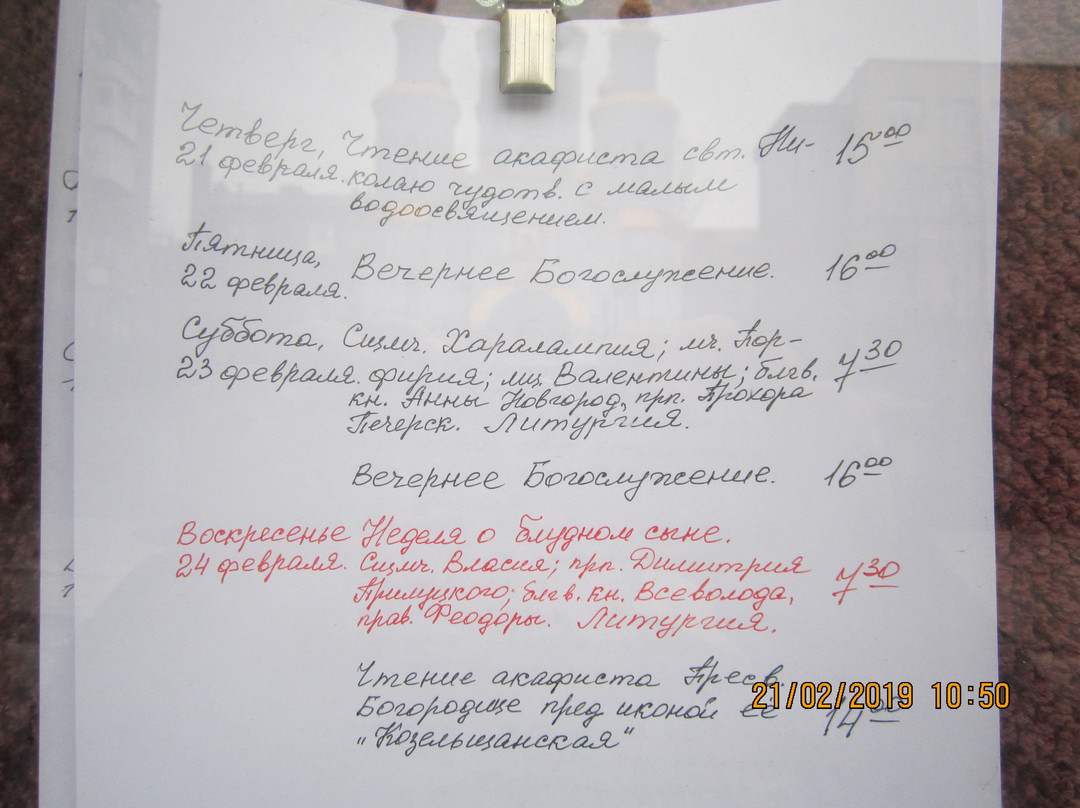 Четверг, Чтение акафиста свт. Ни- 15 00
21 февраля. колаю чудотв. с малым
водоосвящением.
Пятница,
22 февраля. Вечернее Богослужение. 16 00
Суббота, Сщмч. Харалампия; мч. Пор-
23 февраля. фирия; мц. Валентины; блгв. 7 30
кн. Анны Новгород, прп. Прохора
Печерск. Литургия.
Вечернее Богослужение. 16 00
Воскресенье Неделя о блудном сыне.
24 февраля. Сщмч. Власия; прп. Димитрия 7 30
Прилуцкого; блгв. кн. Всеволода,
прав. Феодоры. Литургия.
Чтение акафиста Пресв.
Богородице пред иконой её 14 00
"Козельщанская"
21/02/2019 10:50